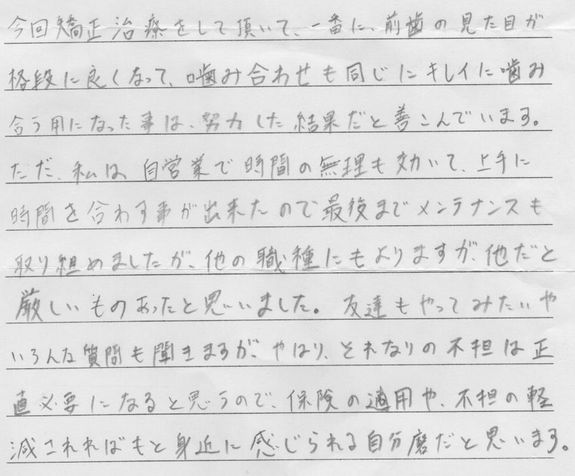 今回矯正治療をして頂いて、一番に、前歯の見た目が
格段に良くなって、噛み合わせも同じにキレイに噛み
合う用になった事は、努力した結果だと善こんでいます。
ただ、私は、自営業で時間の無理も効いて、上手に
時間を合わす事が出来たので最後までメンテナンスも
取り組めましたが、他の職種にもよりますが、他だと
厳しいものあったと思いました。友達もやってみたいや
いろんな質問も聞きますが、やはり、それなりの不担は正
直必要になると思うので、保険の適用や、不担の軽
減されればもと身近に感じられる自分磨だと思います。